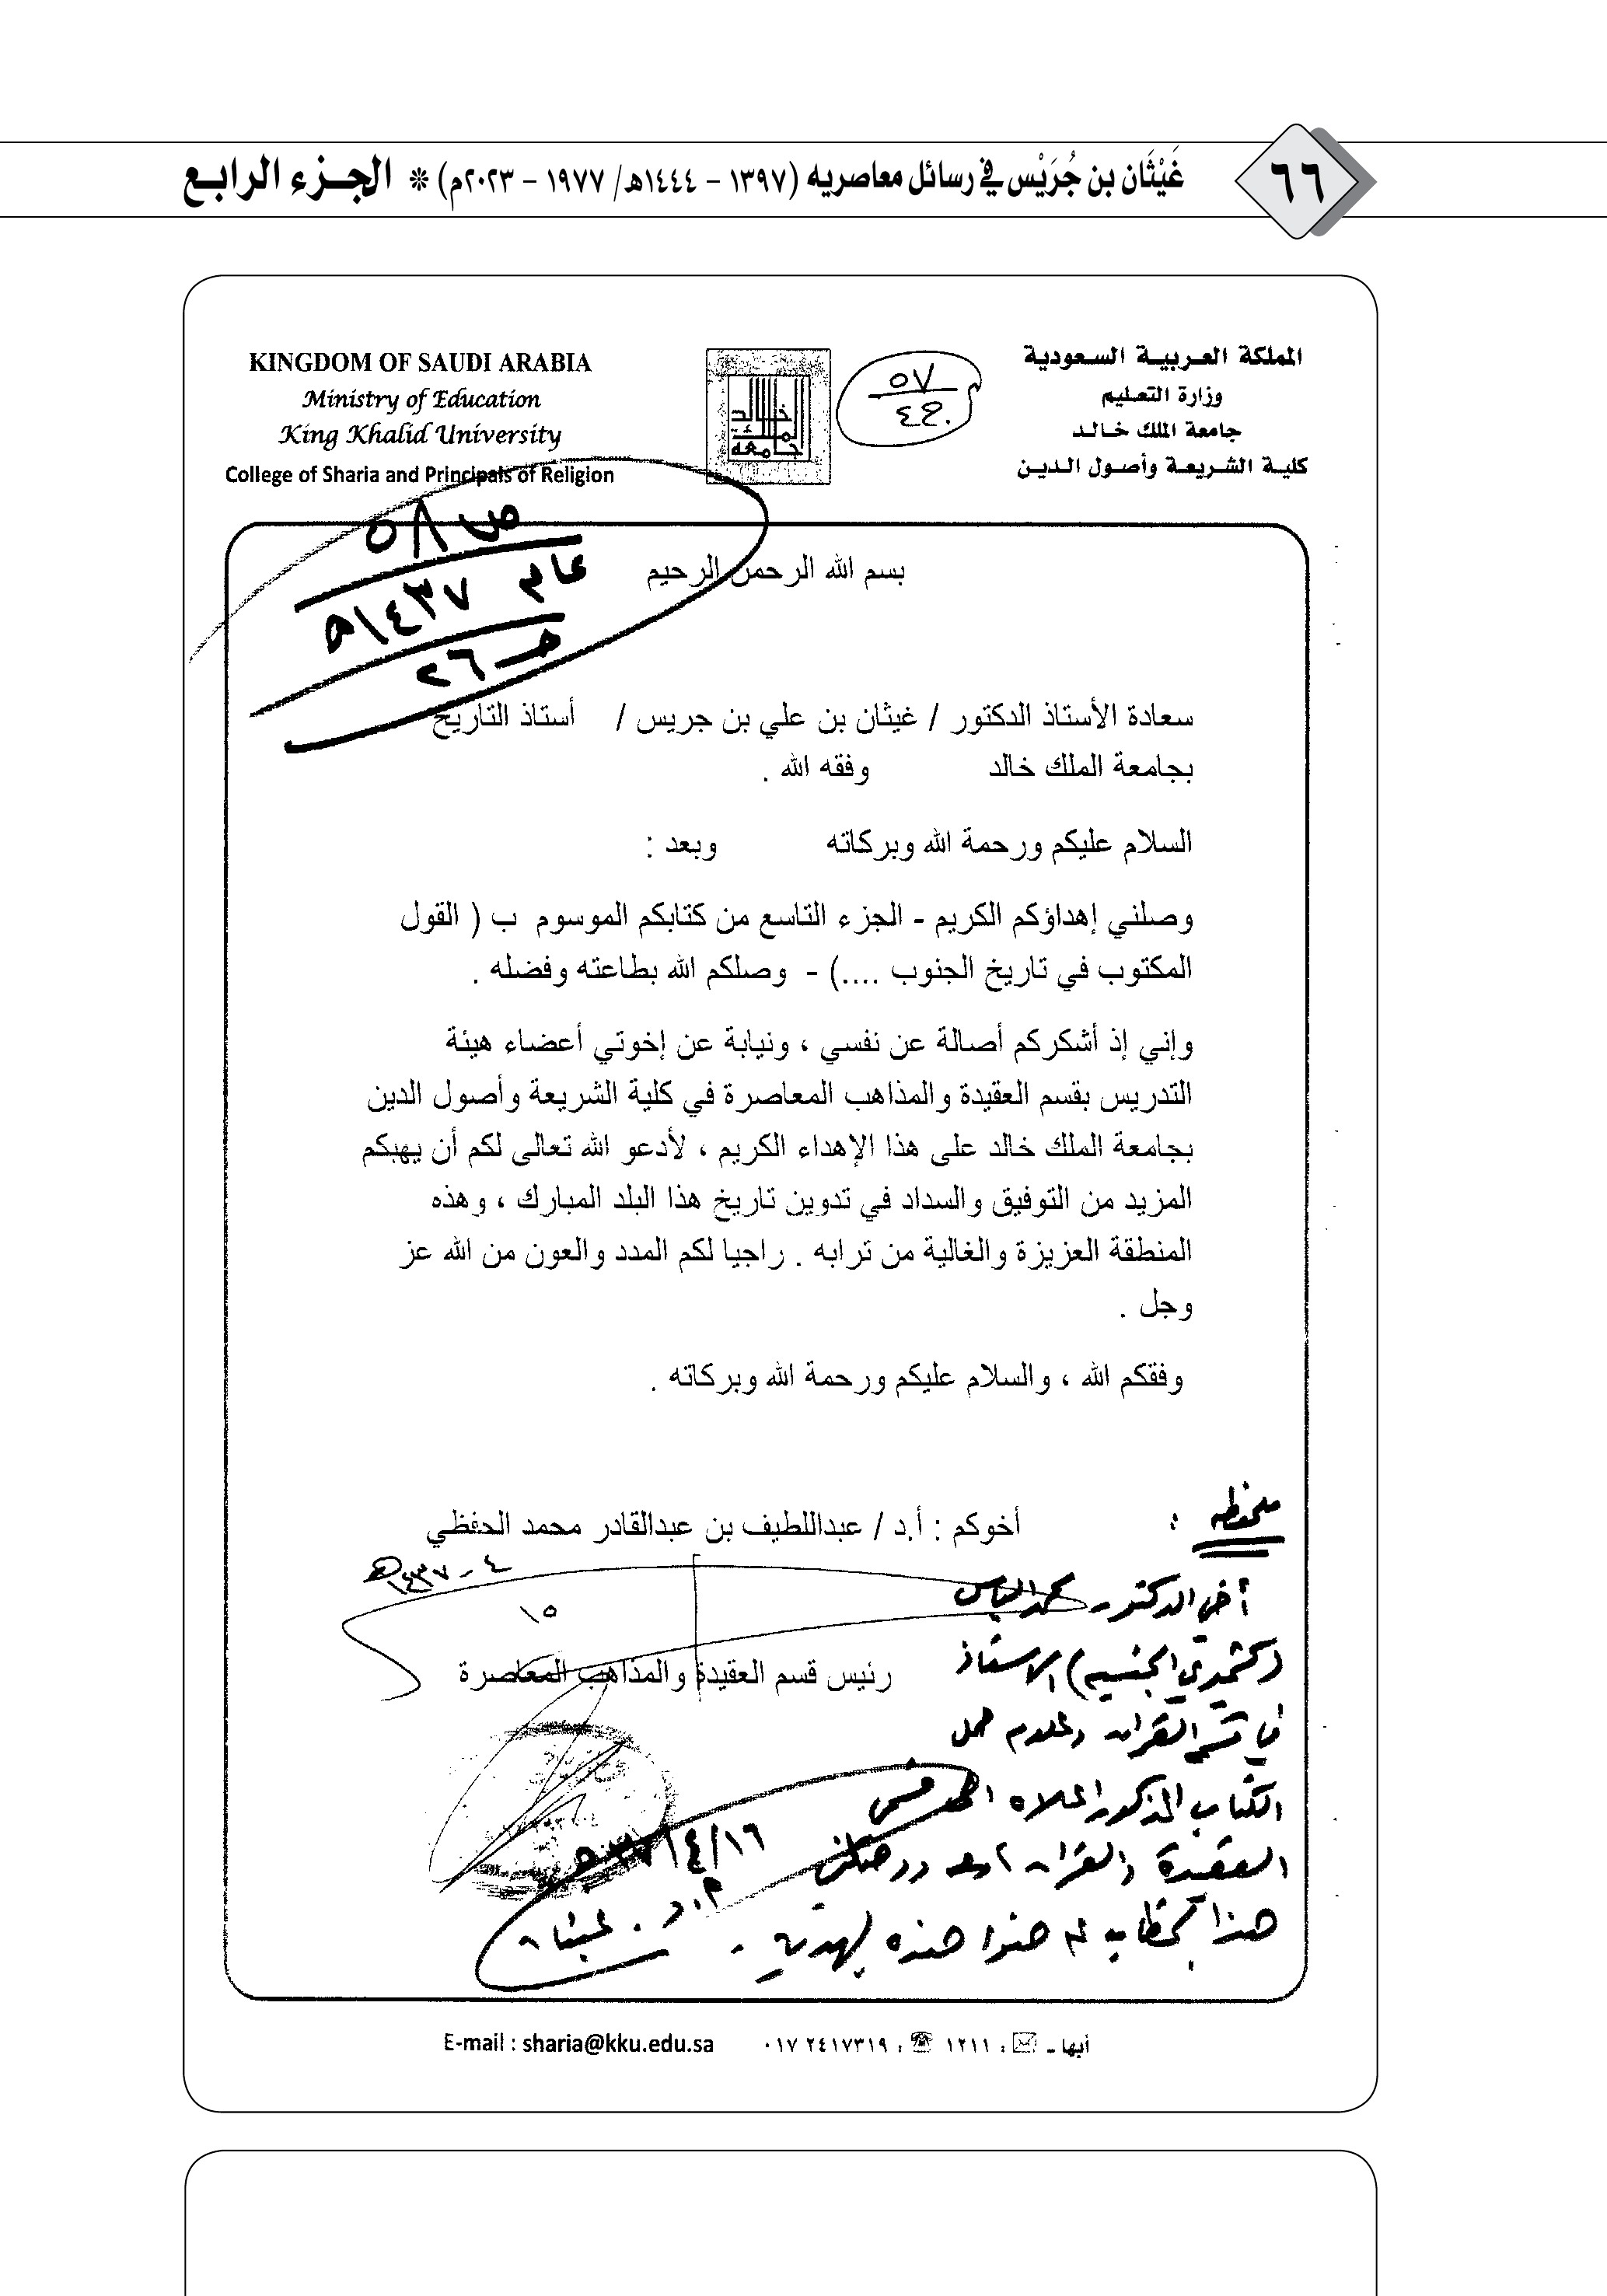 ٦٦
غَيْثَان بن جُرَيْس في رسائل معاصريه (١٣٩٧ – ١٤٤٤هـ/ ١٩٧٧ – ٢٠٢٣م) * الجـزء الرابـع
المملكة العربية السعودية
وزارة التعليم
جامعة الملك خالد
كلية الشريعة وأصول الدين
٥٧
KINGDOM OF SAUDI ARABIA
Ministry of Education
King Khalid University
College of Sharia and Principals of Religion
ص ٥٨
عام ١٤٣٧هـ
بسم الله الرحمن الرحيم
سعادة الأستاذ الدكتور / غيثان بن علي بن جريس / أستاذ التاريخ
بجامعة الملك خالد وفقه الله .
السلام عليكم ورحمة الله وبركاته وبعد :
وصلني إهداؤكم الكريم - الجزء التاسع من كتابكم الموسوم ب ( القول
المكتوب في تاريخ الجنوب ....) - وصلكم الله بطاعته وفضله .
وإني إذ أشكركم أصالة عن نفسي ، ونيابة عن إخوتي أعضاء هيئة
التدريس بقسم العقيدة والمذاهب المعاصرة في كلية الشريعة وأصول الدين
بجامعة الملك خالد على هذا الإهداء الكريم ، لأدعو الله تعالى لكم أن يهبكم
المزيد من التوفيق والسداد في تدوين تاريخ هذا البلد المبارك ، وهذه
المنطقة العزيزة والغالية من ترابه . راجيا لكم المدد والعون من الله عز
وجل .
وفقكم الله ، والسلام عليكم ورحمة الله وبركاته .
أخوكم : أ.د / عبداللطيف بن عبدالقادر محمد الحفظي
١٥
رئيس قسم العقيدة والمذاهب المعاصرة
ملحوظه :
أخي الدكتور محمد الياس
(كشميري الجنسيه) الاستاذ
في قسم القرآن وعلومه حمل
الكتاب المذكور اعلاه الى قسمي
العقيدة والقرآن
هذا الخطاب
١٦/٤/٣٧هـ
أ.د. غيثان
أبها - : ١٢١١ : ٠١٧ ٢٤١٧٣١٩ E-mail : sharia@kku.edu.sa